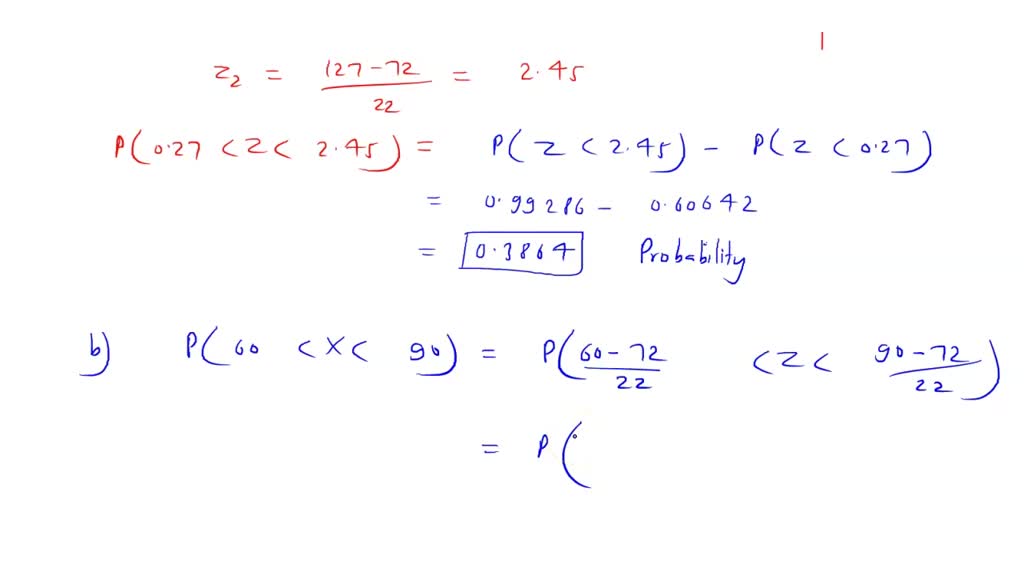 z₂ = (127-72)/22 = 2.45
P(0.27 < Z < 2.45) = P(Z < 2.45) - P(Z < 0.27)
= 0.99286 - 0.60642
= 0.3864 Probability
b) P(60 < X < 90) = P((60-72)/22 < Z < (90-72)/22)
= P(